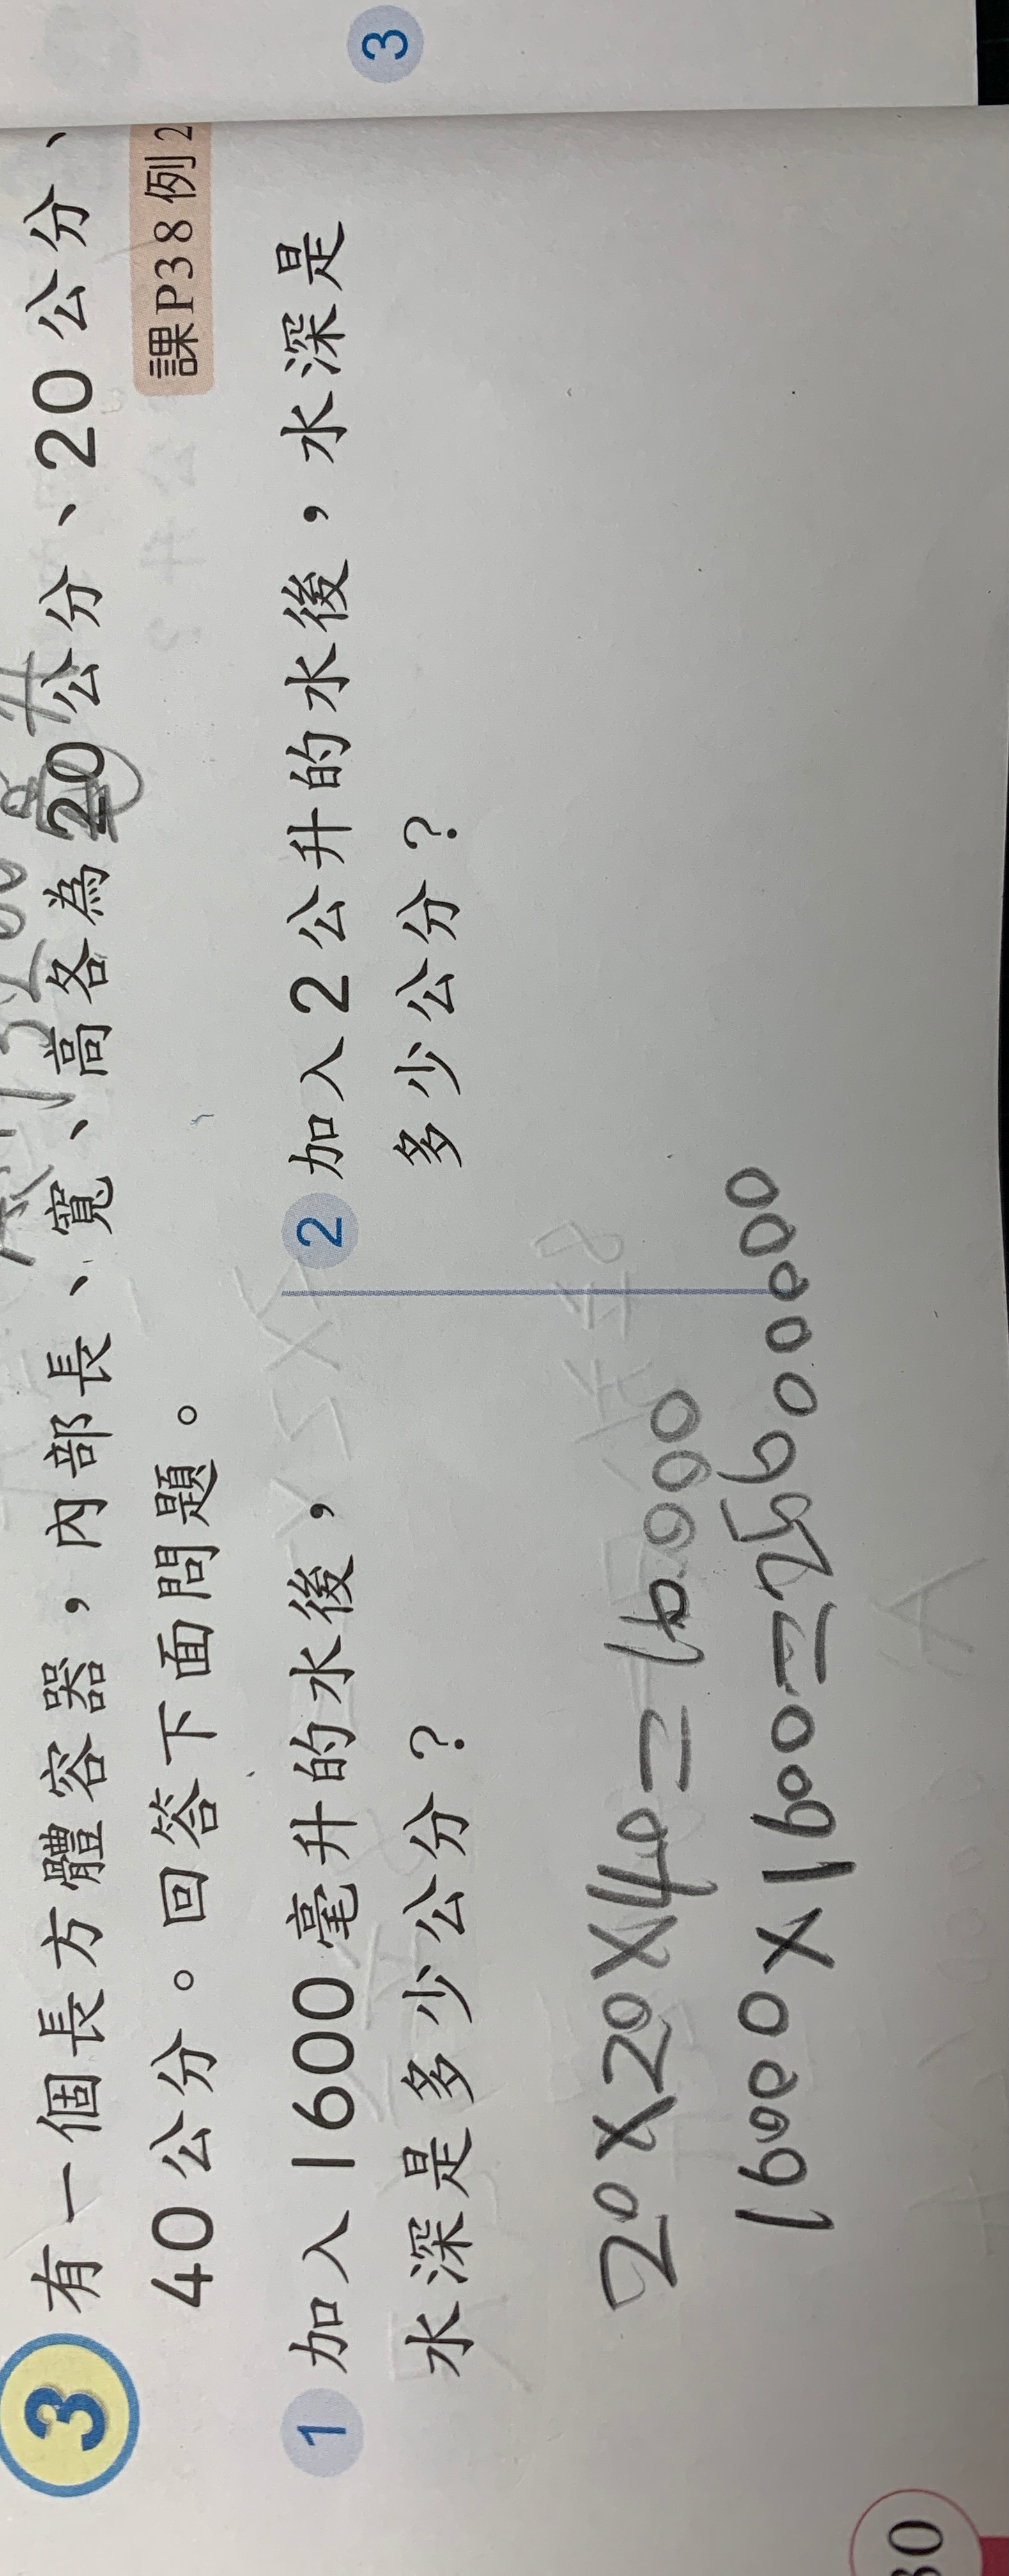 3 有一個長方體容器，內部長、寬、高各為20公分、20公分、
40公分。回答下面問題。
課P38例2
1 加入1600毫升的水後，
水深是多少公分？
20×20×40=16000
16000×1600=25600000
2 加入2公升的水後，水深是
多少公分？
3
30